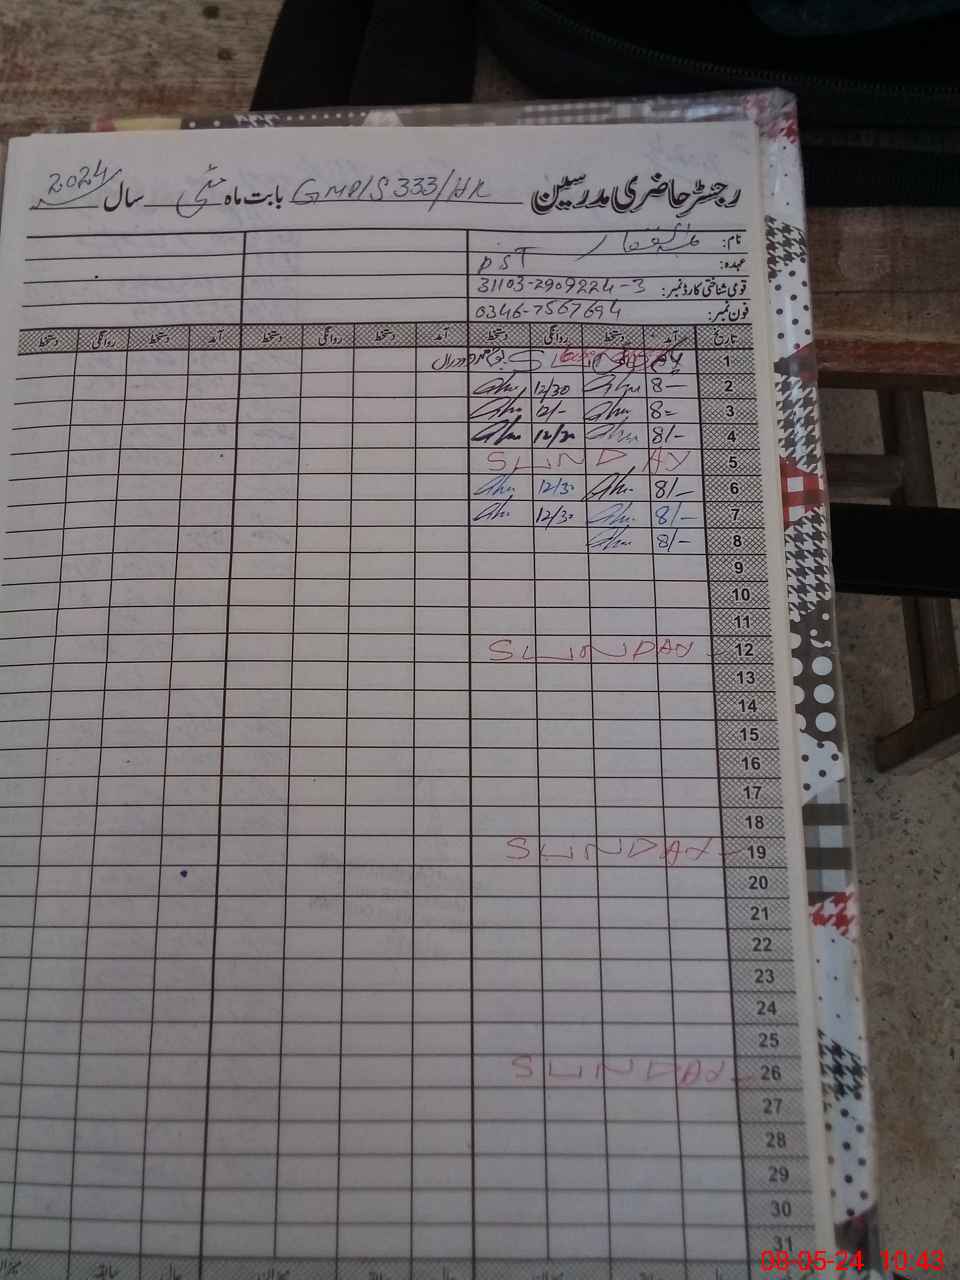 رجسٹر حاضری مدرسین GMP/S 333/HR بابت ماہ مئی سال 2024
نام: عبدالغفار
عہدہ: PST
قومی شناختی کارڈ نمبر: 31103-2909224-3
فون نمبر: 0346-7567694
تاریخ آمد دستخط روانگی دستخط آمد دستخط روانگی دستخط آمد دستخط روانگی دستخط
1
2 8- 12/30
3 8= 12/-
4 8/-
5 SUNDAY
6 8/- 12/30
7 8/- 12/30
8 8/-
9
10
11
12 SUNDAY
13
14
15
16
17
18
19 SUNDAY
20
21
22
23
24
25
26 SUNDAY
27
28
29
30
31
08-05-24 10:43